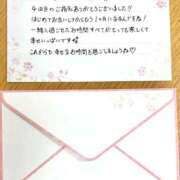 今回のご指名ありがとうございました!!
はじめてお会いしてからもう1ヶ月になるんですね!
一緒に過ごせたお時間すべてがとっても楽しくて
幸せいっぱいです
これからも幸せなお時間を過ごしましょうね♡